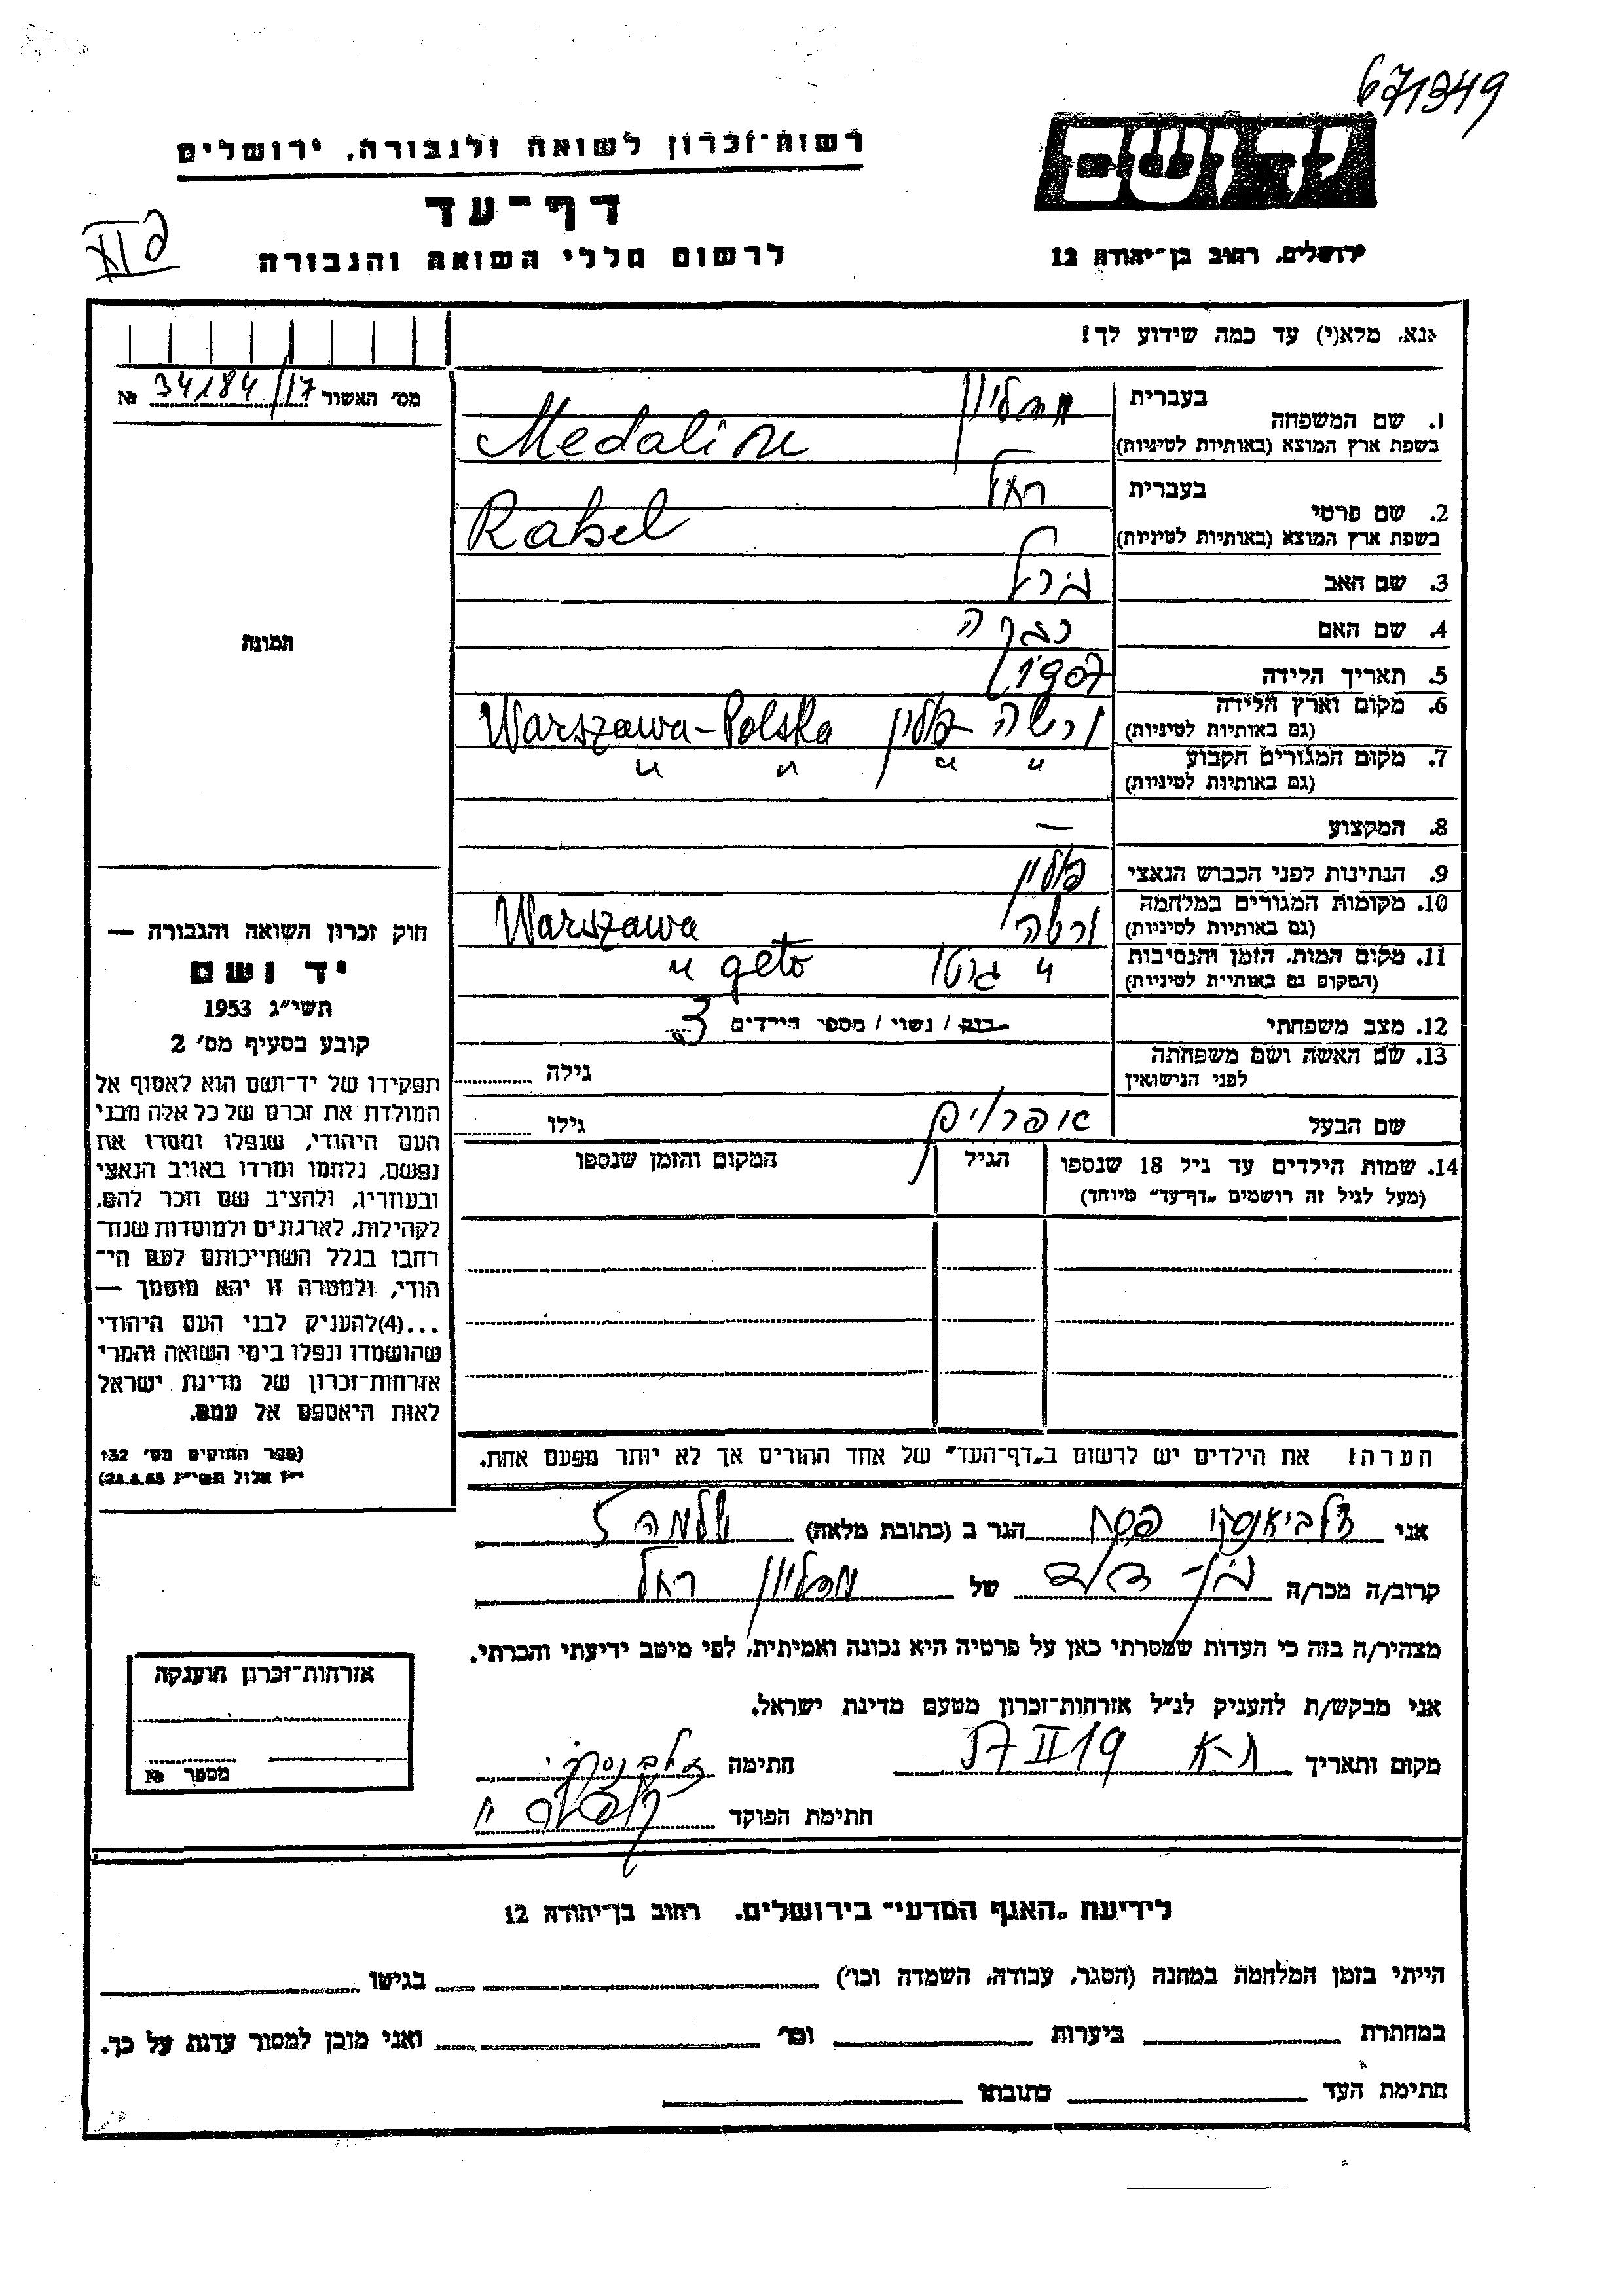 671349
יד ושם
רשות-זכרון לשואה ולגבורה, ירושלים
דף-עד
לרשום חללי השואה והגבורה
ירושלים, רחוב בן-יהודה 12
אנא, מלא(י) עד כמה שידוע לך!
מס' האשור 34184/17 №
1. שם המשפחה
בעברית מדליון
בשפת ארץ המוצא (באותיות לטיניות) Medalion
2. שם פרטי
בעברית רחל
בשפת ארץ המוצא (באותיות לטיניות) Rahel
3. שם האב
4. שם האם
5. תאריך הלידה 1907
6. מקום וארץ הלידה (גם באותיות לטיניות) ורשה פולין Warszawa-Polska
7. מקום המגורים הקבוע (גם באותיות לטיניות) " " " "
8. המקצוע —
9. הנתינות לפני הכבוש הנאצי פולין
10. מקומות המגורים במלחמה (גם באותיות לטיניות) ורשה Warszawa
11. מקום המות, הזמן והנסיבות (המקום גם באותיות לטיניות) " גטו " geto
12. מצב משפחתי רווק / נשוי / מספר הילדים 3
13. שם האשה ושם משפחתה לפני הנישואין
גילה
שם הבעל אפרים
גילו
14. שמות הילדים עד גיל 18 שנספו
(מעל לגיל זה רושמים "דף-עד" מיוחד)
הגיל
המקום והזמן שנספו
הערה! את הילדים יש לרשום ב"דף-העד" של אחד ההורים אך לא יותר מפעם אחת.
תמונה
חוק זכרון השואה והגבורה —
יד ושם
תשי"ג 1953
קובע בסעיף מס' 2
תפקידו של יד-ושם הוא לאסוף אל
המולדת את זכרם של כל אלה מבני
העם היהודי, שנפלו ומסרו את
נפשם, נלחמו ומרדו באויב הנאצי
ובעוזריו, ולהציב שם וזכר להם,
לקהילות, לארגונים ולמוסדות שנח-
רבו בגלל השתייכותם לעם הי-
הודי, ולמטרה זו יהא מוסמך —
...(4) להעניק לבני העם היהודי
שהושמדו ונפלו בימי השואה והמרי
אזרחות-זכרון של מדינת ישראל
לאות היאספם אל עמם.
(ספר החוקים מס' 132
אני פסח הגר ב (כתובת מלאה) שלמה 7
קרוב/ה מכר/ה בן-דוד של מדליון רחל
מצהיר/ה בזה כי העדות שמסרתי כאן על פרטיה היא נכונה ואמיתית, לפי מיטב ידיעתי והכרתי.
אני מבקש/ת להעניק לנ"ל אזרחות-זכרון מטעם מדינת ישראל.
מקום ותאריך ת-א 19 II 57 חתימה
חתימת הפוקד
אזרחות-זכרון הוענקה
מספר №
לידיעת "האגף המדעי" בירושלים, רחוב בן-יהודה 12
הייתי בזמן המלחמה במחנה (הסגר, עבודה, השמדה וכו') בגיטו
במחתרת ביערות וכו' ואני מוכן למסור עדות על כך.
חתימת העד כתובתו